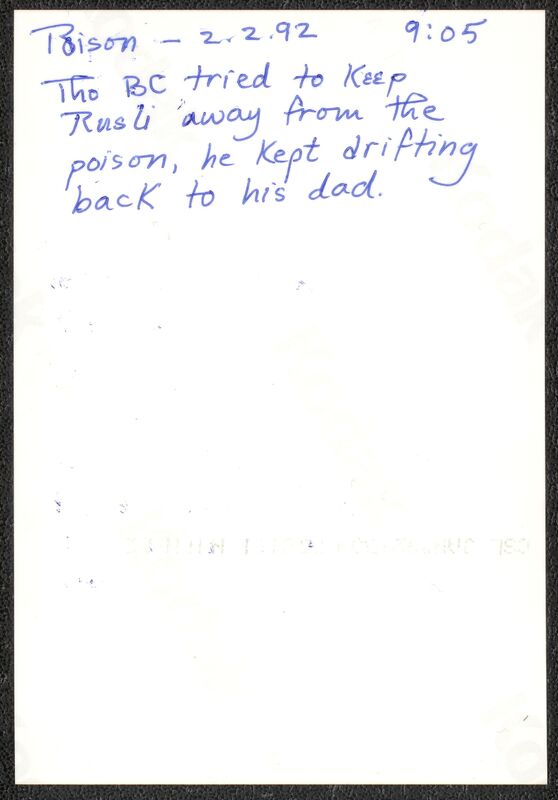 Poison - 2.2.92 9:05
Tho BC tried to Keep
Rusli away from the
poison, he Kept drifting
back to his dad.